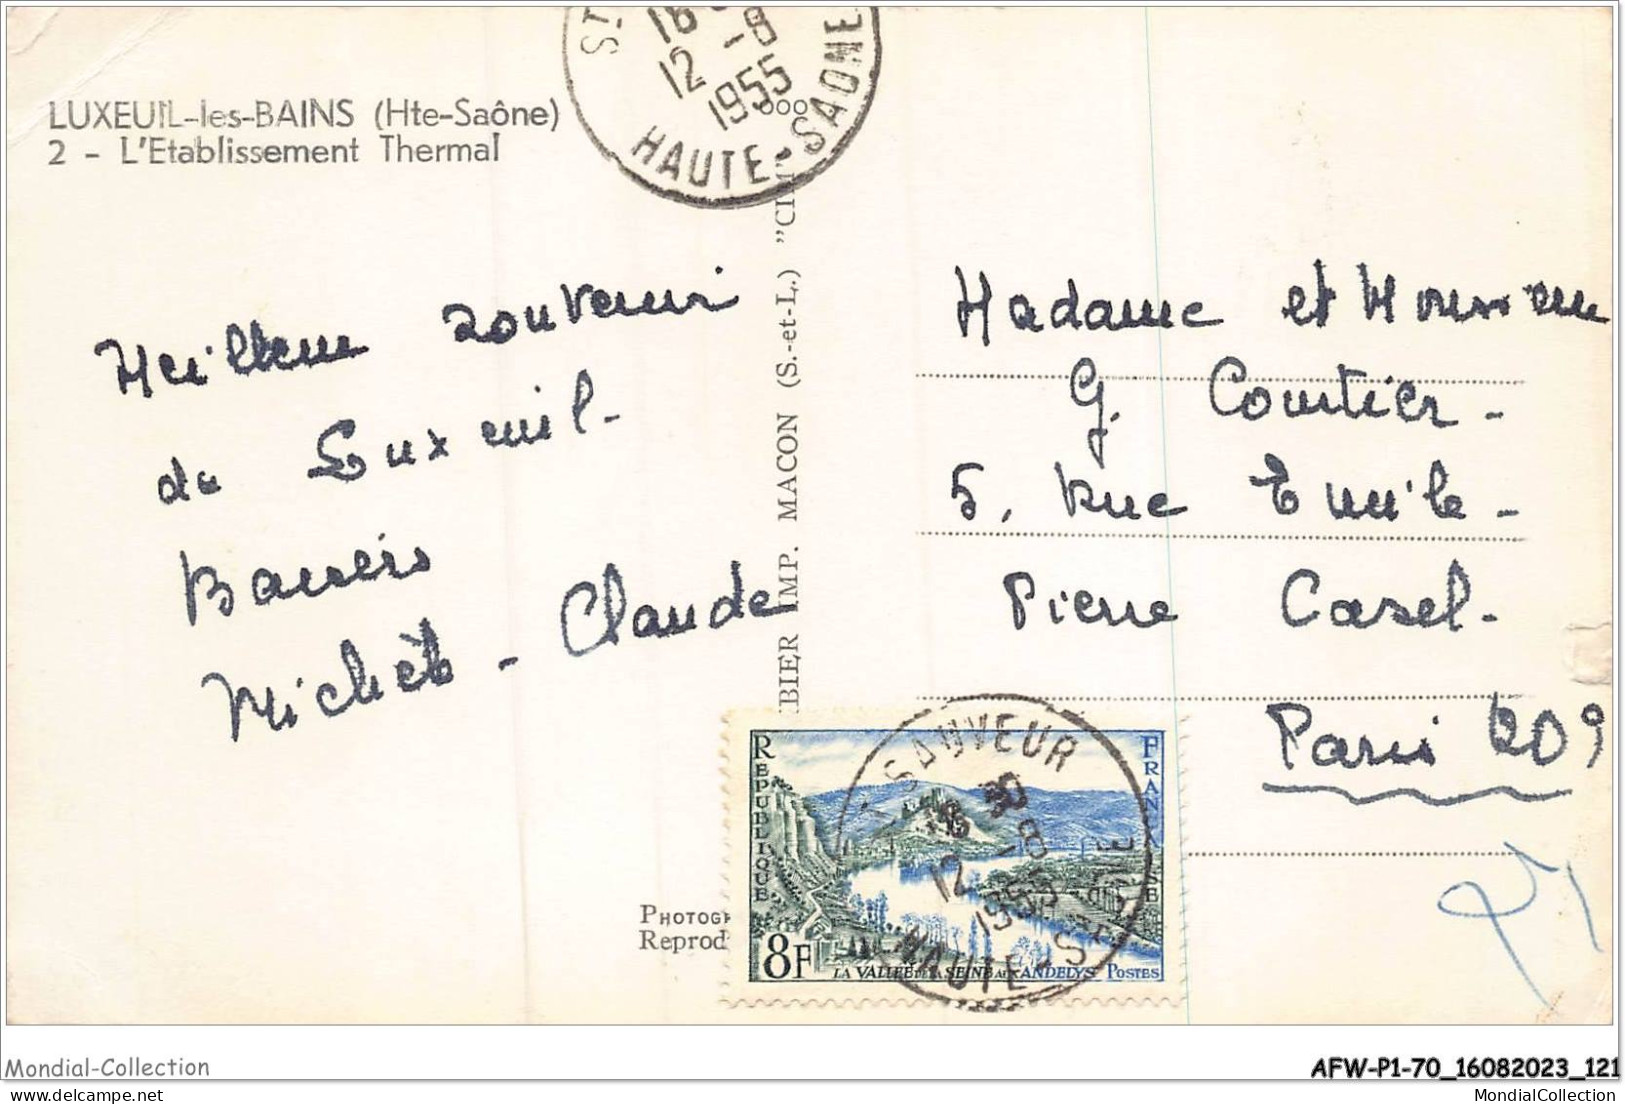 LUXEUIL-les-BAINS (Hte-Saône)
2 - L'Etablissement Thermal
ST
18
12 -8
1955
HAUTE-SAONE
Meilleur souvenir
de Luxeuil-
Baisers
Michèle - Claude
BIER IMP. MACON (S.-et-L.) "CIM"
Madame et Monsieur
G. Courtier -
5, Rue Emile-
Pierre Casel-
Paris 20e
PHOTOGR
Reprod
REPUBLIQUE FRANÇAISE
8F
LA VALLEE DE LA SEINE AUX ANDELYS POSTES
ST SAUVEUR
18 30
12 -8
1955
HAUTE-SAONE
Mondial-Collection
AFW-P1-70_16082023_121
MondialCollection.com